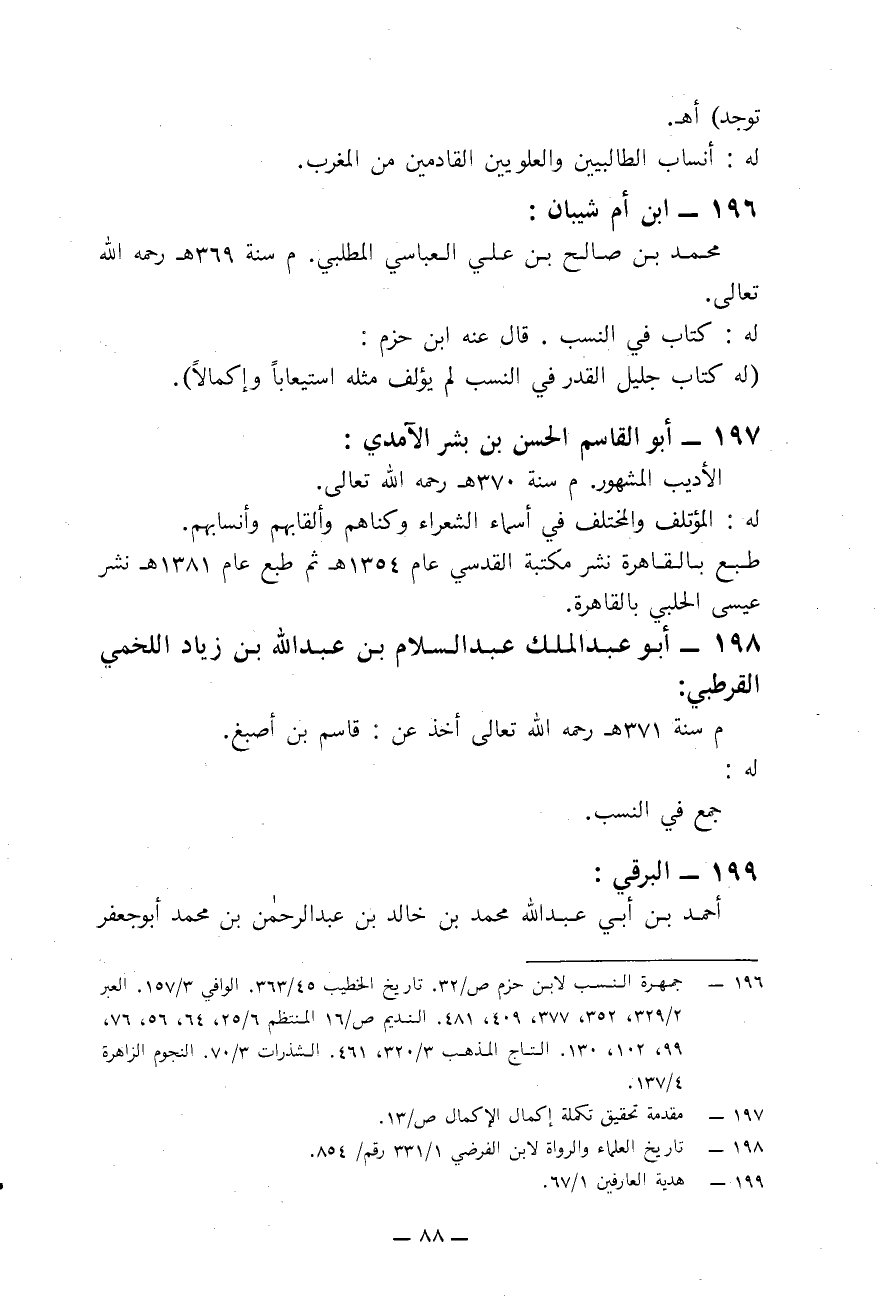 توجد) أهـ.
له : أنساب الطالبيين والعلويين القادمين من المغرب.
١٩٦ – ابن أم شيبان :
محمد بن صالح بن علي العباسي المطلبي. م سنة ٣٦٩هـ رحمه الله
تعالى.
له : كتاب في النسب . قال عنه ابن حزم :
(له كتاب جليل القدر في النسب لم يؤلف مثله استيعاباً وإكمالاً).
١٩٧ – أبو القاسم الحسن بن بشر الآمدي :
الأديب المشهور. م سنة ٣٧٠هـ رحمه الله تعالى.
له : المؤتلف والمختلف في أسماء الشعراء وكناهم وألقابهم وأنسابهم.
طبع بالقاهرة نشر مكتبة القدسي عام ١٣٥٤هـ ثم طبع عام ١٣٨١هـ نشر
عيسى الحلبي بالقاهرة.
١٩٨ – أبو عبدالملك عبدالسلام بن عبدالله بن زياد اللخمي
القرطبي:
م سنة ٣٧١هـ رحمه الله تعالى أخذ عن : قاسم بن أصبغ.
له :
جمع في النسب.
١٩٩ – البرقي :
أحمد بن أبي عبدالله محمد بن خالد بن عبدالرحمٰن بن محمد أبوجعفر
١٩٦ – جمهرة النسب لابن حزم ص/٣٢. تاريخ الخطيب ٣٦٣/٤٥. الوافي ١٥٧/٣. العبر
٣٢٩/٢، ٣٥٢، ٣٧٧، ٤٠٩، ٤٨١. النديم ص/١٦ المنتظم ٢٥/٦، ٦٤، ٥٦، ٧٦،
٩٩، ١٠٢، ١٣٠. التاج المذهب ٣٢٠/٣، ٤٦١. الشذرات ٧٠/٣. النجوم الزاهرة
١٣٧/٤.
١٩٧ – مقدمة تحقيق تكملة إكمال الإكمال ص/١٣.
١٩٨ – تاريخ العلماء والرواة لابن الفرضي ٣٣١/١ رقم/ ٨٥٤.
١٩٩ – هدية العارفين ٦٧/١.
– ٨٨ –